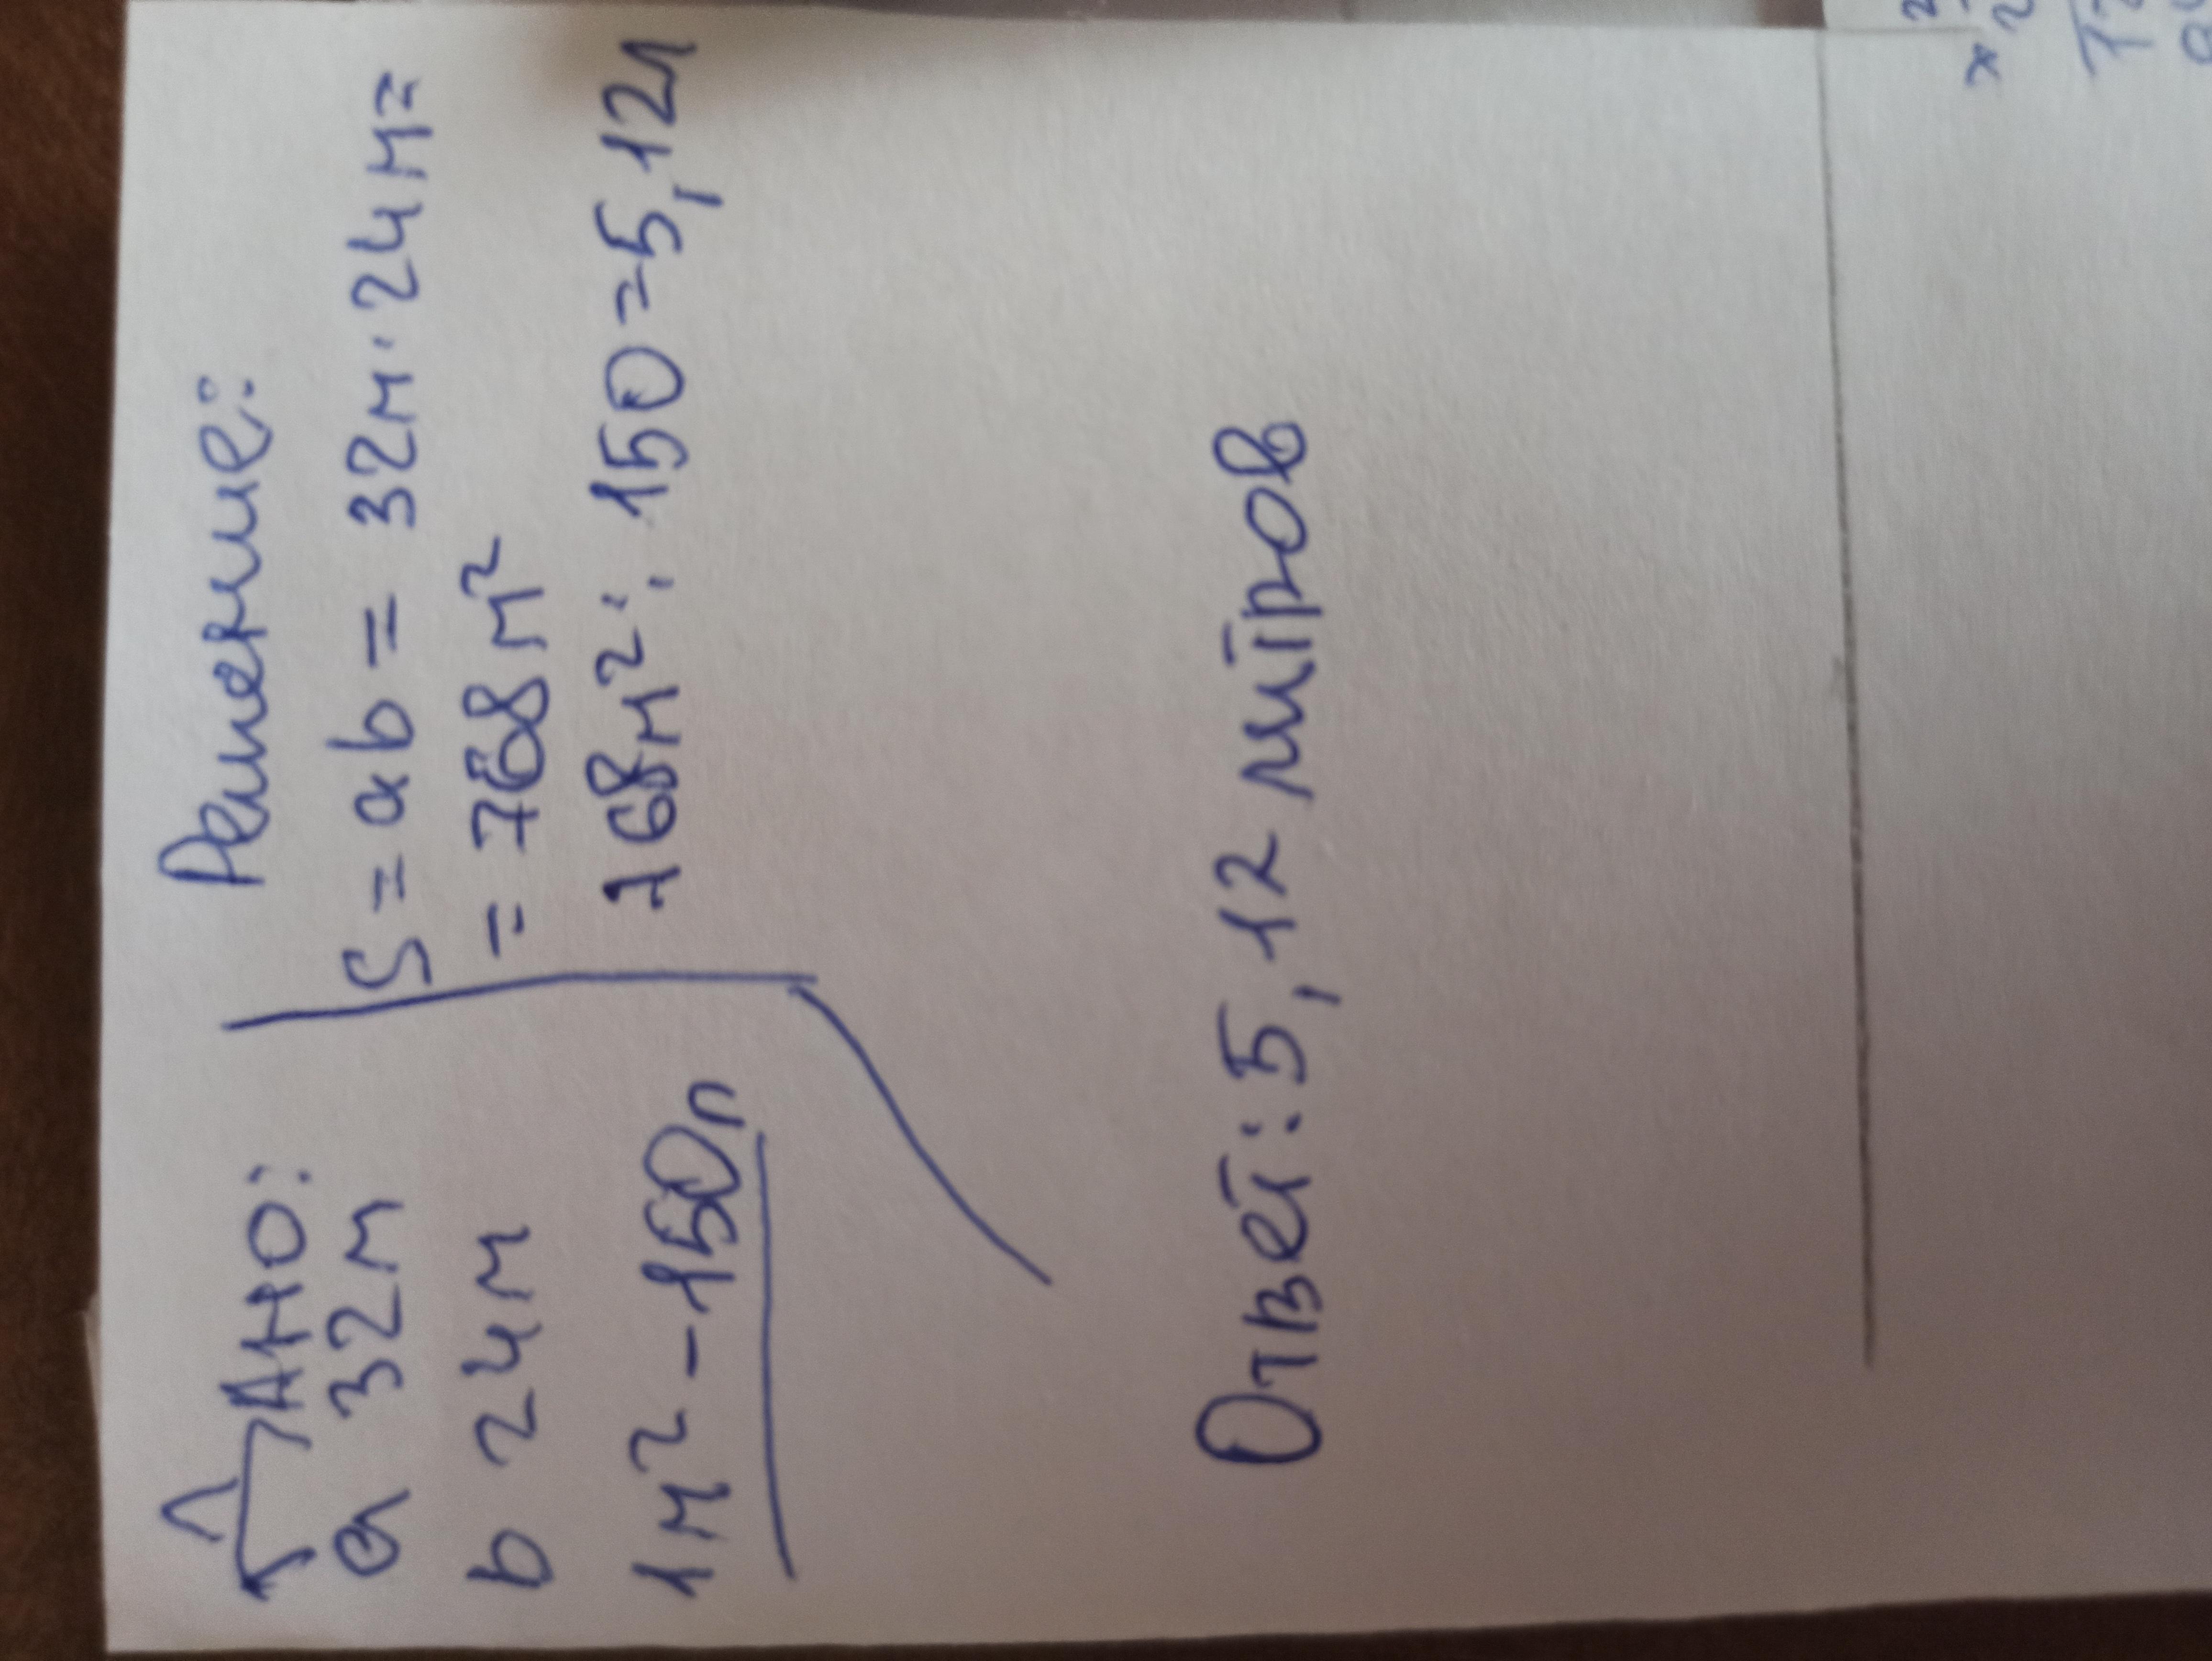 ДАНО:
a 32м
b 24м
1м² - 150л
Решение:
S = ab = 32м · 24м =
= 768 м²
768м² : 150 = 5,12л
Ответ: 5,12 литров